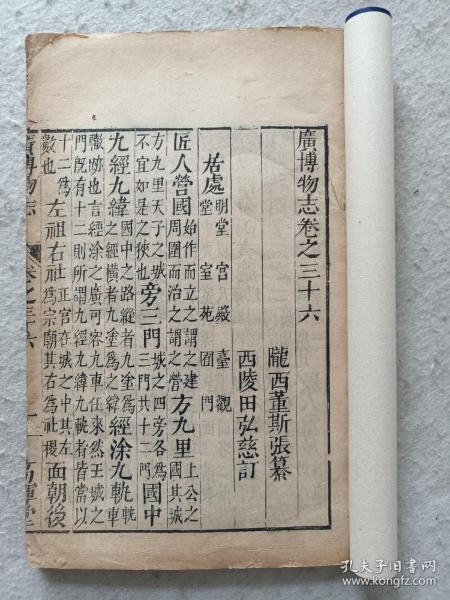 廣博物志卷之三十六
隴西董斯張纂
西陵田弘慈訂
居處 明堂 宮 殿 臺 觀
堂 室 苑 囿 門
匠人營國 始作而立之謂之建
周圍而治之謂之營 方九里 上公之
國其城
方九里天子之城
不宜如是之狹也 旁三門 城之四旁各爲
三門共十二門 國中
九經九緯 國中之路縱者九塗爲
之經橫者九塗爲之緯 經涂九軌 軌車
轍跡也言經涂之廣可容九車任來然王城之
門旣有十二則所謂九經九緯九軌者皆當以
十二爲
數也 左祖右社 正宮在城之中其左
爲宗廟其右爲社稷 面朝後
廣博物志
卷之三六
一
高暉堂
孔夫子旧书网
www.kongfz.com